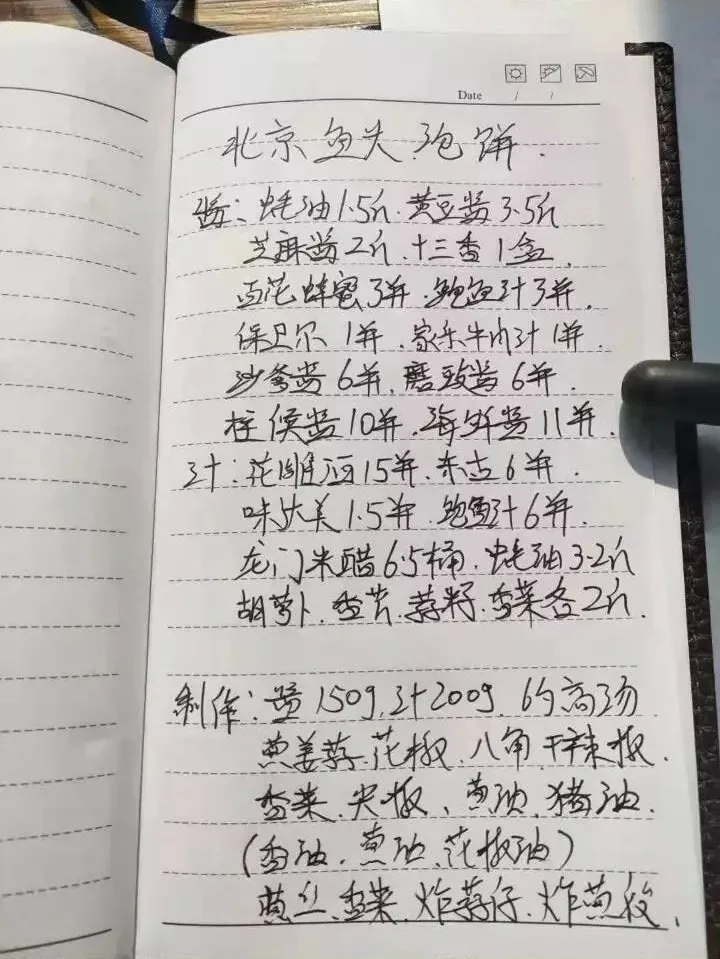 Date / /
北京鱼头泡饼.
酱: 蚝油1.5斤.黄豆酱3.5斤
芝麻酱2斤.十三香1盒.
百花蜂蜜3并.鲍鱼汁3并.
保卫尔1并.家乐牛肉汁1并.
沙爹酱6并.磨豉酱6并.
柱侯酱10并.海鲜酱11并.
汁:花雕酒15并.东古6并.
味达美1.5并.鲍鱼汁6并.
龙门米醋6.5桶.蚝油3.2斤
胡萝卜.香芹.蒜籽.香菜各2斤.
制作:酱150g.汁200g.6勺高汤
葱姜蒜.花椒.八角.干辣椒.
香菜.尖椒、葱油.猪油.
(香油.葱油.花椒油)
葱丝.香菜.炸蒜仔.炸葱段.